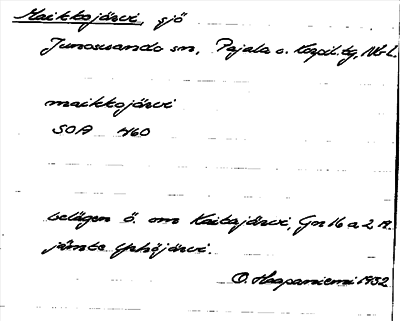 Maikkojärvi, sjö
Junosuando sn, Pajala o. Korpil. tg, Nb. L.
maikkojärvi
SOA 460
belägen ö. om Kaitajärvi, Gr 16 a 2 19.
jämte Yhöjärvi.
O. Haapaniemi 1932